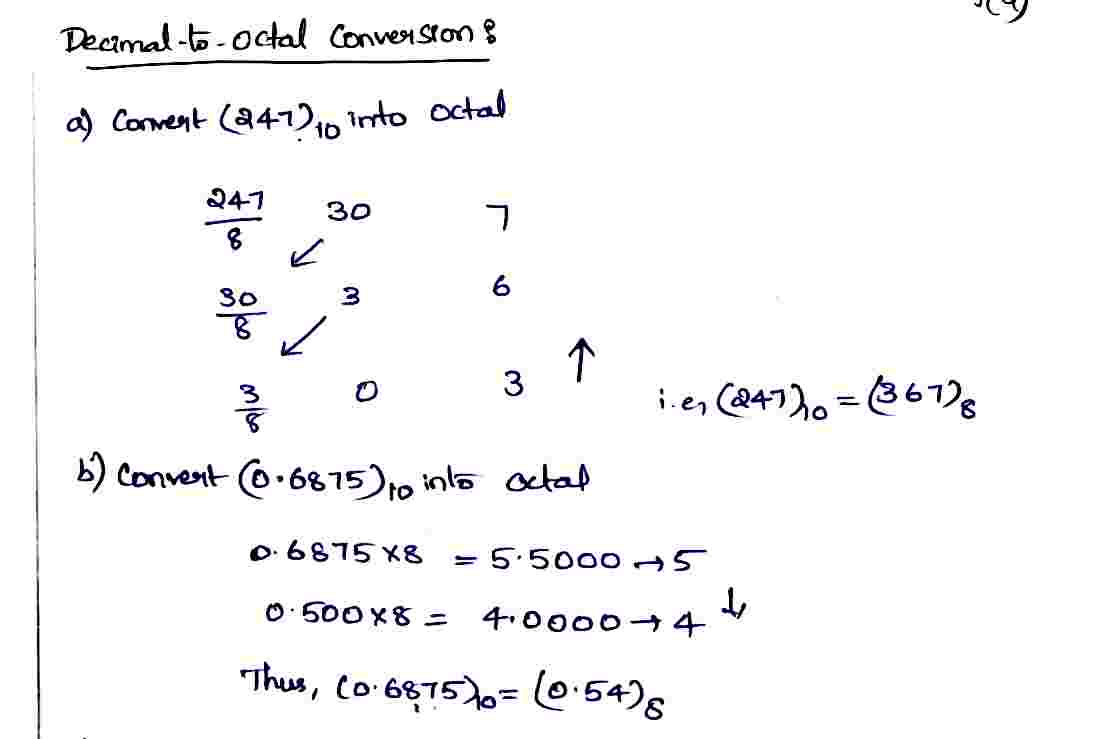 Decimal-to-octal Conversion:
a) Convert (247)₁₀ into octal
247/8 30 7
30/8 ↙ 3 6
3/8 ↙ 0 3 ↑ i.e, (247)₁₀ = (367)₈
b) Convert (0.6875)₁₀ into octal
0.6875 x 8 = 5.5000 → 5
0.500 x 8 = 4.0000 → 4 ↓
Thus, (0.6875)₁₀ = (0.54)₈